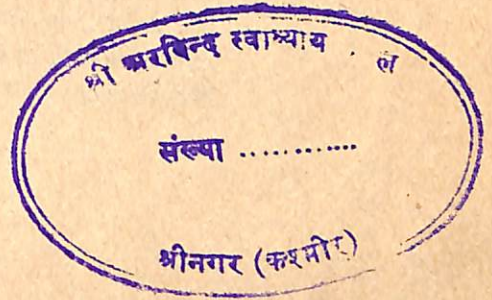 श्री अरविन्द स्वाध्याय ल
संख्या ............
श्रीनगर (कश्मीर)